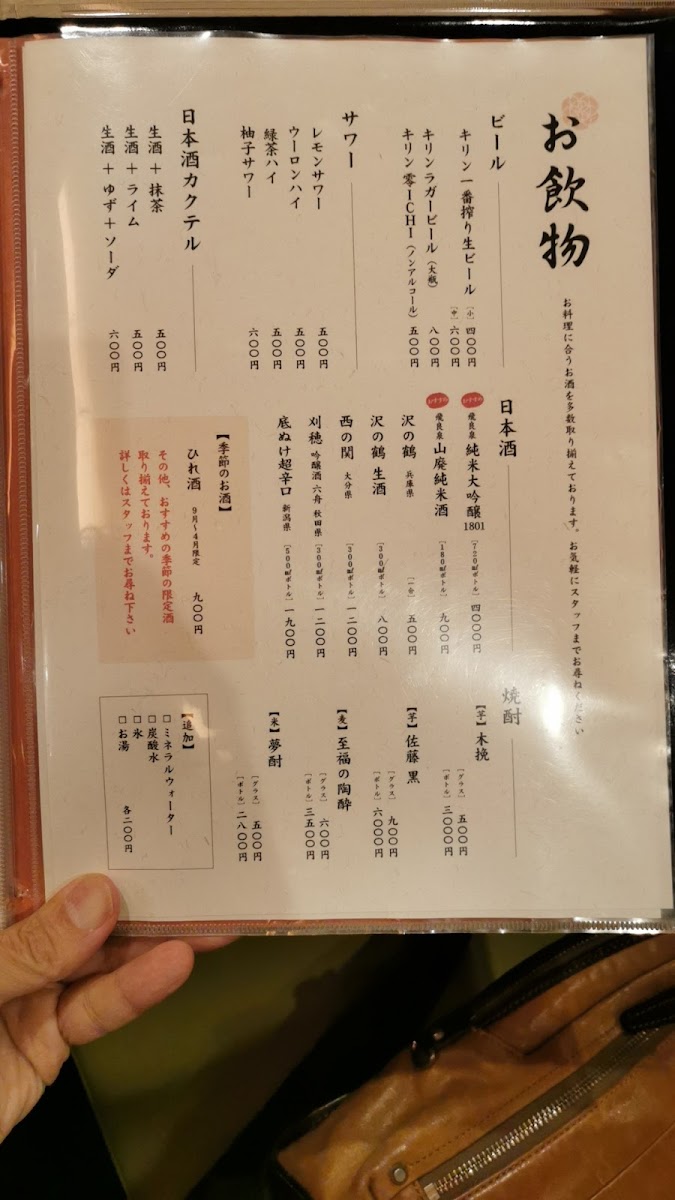 お飲物
お料理に合うお酒を多数取り揃えております。お気軽にスタッフまでお尋ねください
ビール
キリン一番搾り生ビール
[小] 四〇〇円
[中] 六〇〇円
キリンラガービール(大瓶) 八〇〇円
キリン零ICHI(ノンアルコール) 五〇〇円
サワー
レモンサワー 五〇〇円
ウーロンハイ 五〇〇円
緑茶ハイ 五〇〇円
柚子サワー 六〇〇円
日本酒カクテル
生酒+抹茶 五〇〇円
生酒+ライム 五〇〇円
生酒+ゆず+ソーダ 六〇〇円
日本酒
おすすめ 飛良泉 純米大吟醸1801 [720mlボトル] 四〇〇〇円
おすすめ 飛良泉 山廃純米酒 [180mlボトル] 九〇〇円
沢の鶴 兵庫県 [一合] 五〇〇円
沢の鶴 生酒 [300mlボトル] 八〇〇円
西の関 大分県 [300mlボトル] 一二〇〇円
刈穂 吟醸酒 六舟 秋田県 [300mlボトル] 一二〇〇円
底ぬけ超辛口 新潟県 [500mlボトル] 一九〇〇円
【季節のお酒】
ひれ酒 9月〜4月限定 九〇〇円
その他、おすすめの季節の限定酒
取り揃えております。
詳しくはスタッフまでお尋ね下さい
焼酎
【芋】木挽
[グラス] 五〇〇円
[ボトル] 三〇〇〇円
【芋】佐藤 黒
[グラス] 九〇〇円
[ボトル] 六〇〇〇円
【麦】至福の陶酔
[グラス] 六〇〇円
[ボトル] 三五〇〇円
【米】夢酎
[グラス] 五〇〇円
[ボトル] 二八〇〇円
【追加】
□ミネラルウォーター
□炭酸水
□氷
□お湯 各二〇〇円